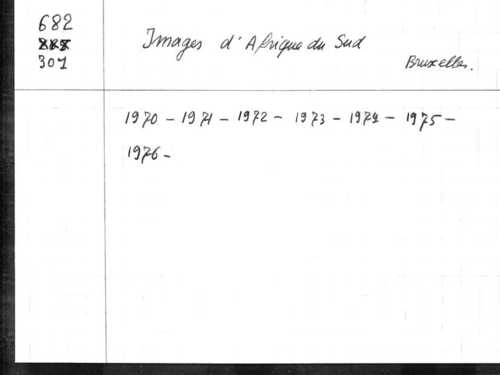 682
301
Images d'Afrique du Sud
Bruxelles.
1970 - 1971 - 1972 - 1973 - 1974 - 1975 -
1976 -